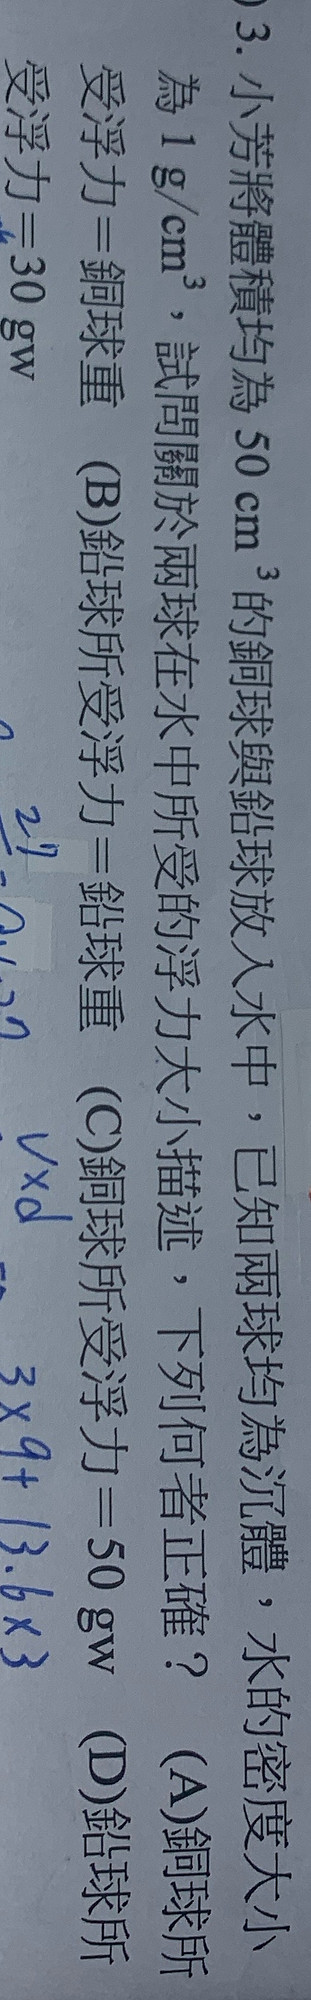 ) 3. 小芳將體積均為 50 cm³ 的銅球與鉛球放入水中，已知兩球均為沉體，水的密度大小
為 1 g/cm³，試問關於兩球在水中所受的浮力大小描述，下列何者正確？ (A)銅球所
受浮力＝銅球重 (B)鉛球所受浮力＝鉛球重 (C)銅球所受浮力＝50 gw (D)鉛球所
受浮力＝30 gw
V×d
27
3×9+13.6×3